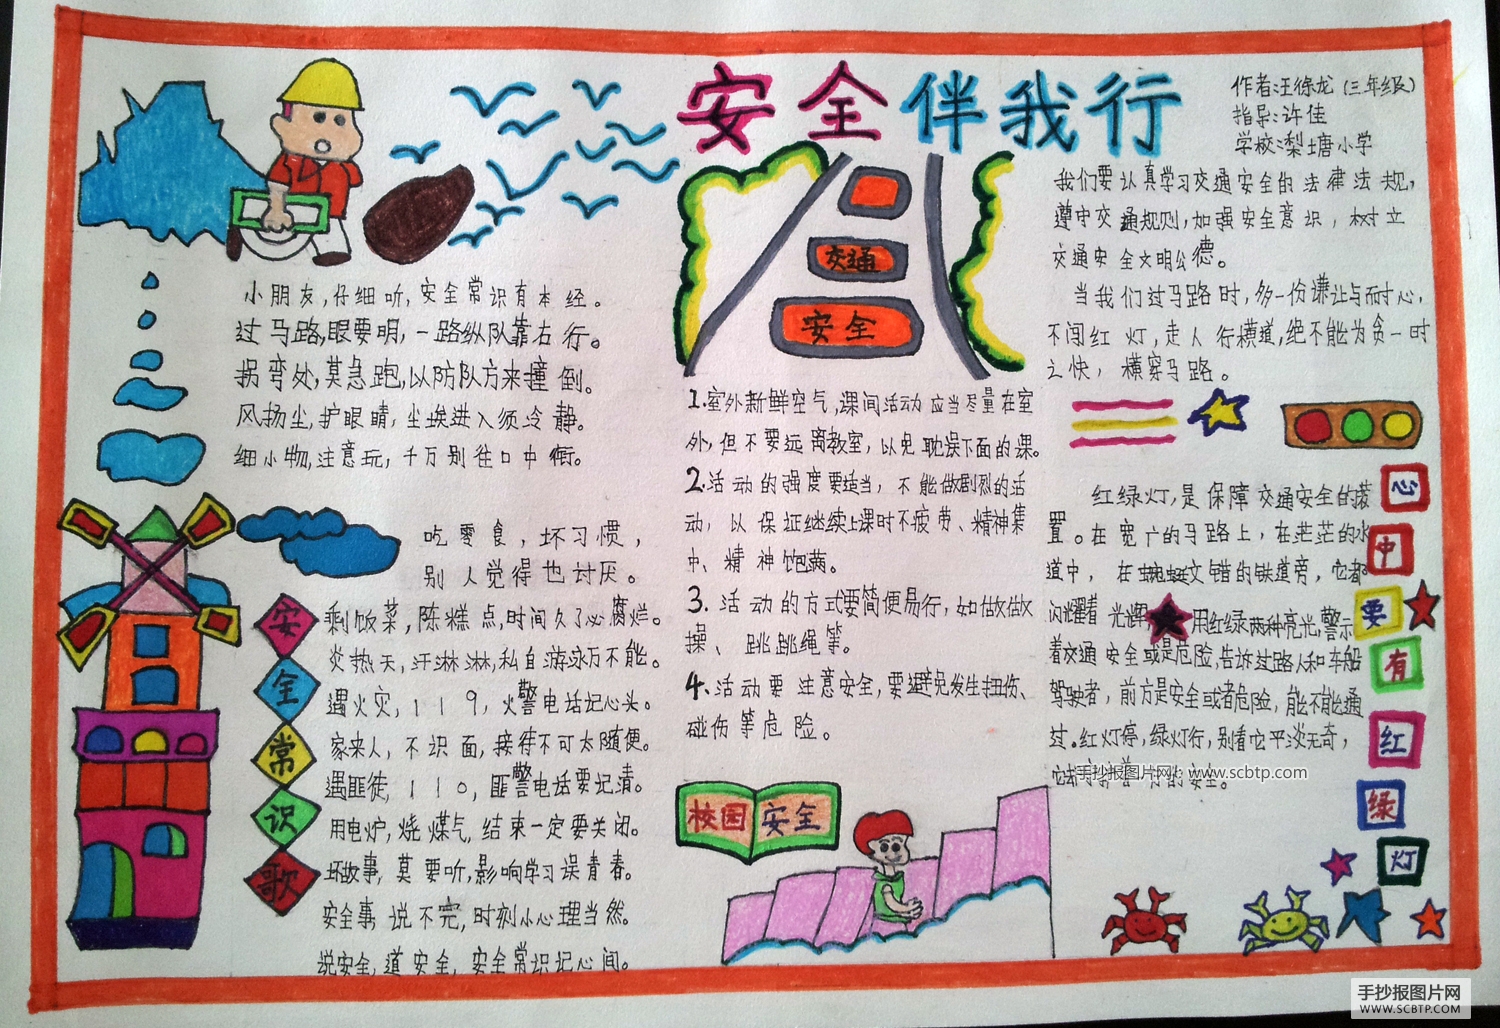 安全伴我行
作者:汪徐龙(三年级)
指导:许佳
学校:梨塘小学
小朋友,仔细听,安全常识有本经。
过马路,眼要明,一路纵队靠右行。
拐弯处,莫急跑,以防队方来撞倒。
风扬尘,护眼睛,尘埃进入须冷静。
细小物,注意玩,千万别往口中衔。
吃零食,坏习惯,
别人觉得也讨厌。
剩饭菜,陈糕点,时间久了必腐烂。
炎热天,汗淋淋,私自游泳万不能。
遇火灾,119,火警电话记心头。
家来人,不识面,接待不可太随便。
遇匪徒,110,匪警电话要记清。
用电炉,烧煤气,结束一定要关闭。
坏故事,莫要听,影响学习误青春。
安全事,说不完,时刻小心理当然。
说安全,道安全,安全常识记心间。
安
全
常
识
歌
交通
安全
1.室外新鲜空气,课间活动应当尽量在室
外,但不要远离教室,以免耽误下面的课。
2.活动的强度要适当,不能做剧烈的活
动,以保证继续上课时不疲劳、精神集
中、精神饱满。
3.活动的方式要简便易行,如做做
操、跳跳绳等。
4.活动要注意安全,要避免发生扭伤、
碰伤等危险。
校园安全
我们要认真学习交通安全的法律法规,
遵守交通规则,加强安全意识,树立
交通安全文明公德。
当我们过马路时,多一份谦让与耐心,
不闯红灯,走人行横道,绝不能为贪一时
之快,横穿马路。
红绿灯,是保障交通安全的装
置。在宽广的马路上,在茫茫的水
道中,在蜿蜒交错的铁道旁,它都
闪耀着光辉,用红绿两种亮光,警示
着交通安全或是危险,告诉过路人和车船
驾驶者,前方是安全或者危险,能不能通
过。红灯停,绿灯行,别看它平淡无奇,
的安全。
心
中
要
有
红
绿
灯
手抄报图片网:www.scbtp.com
手抄报图片网
WWW.SCBTP.COM